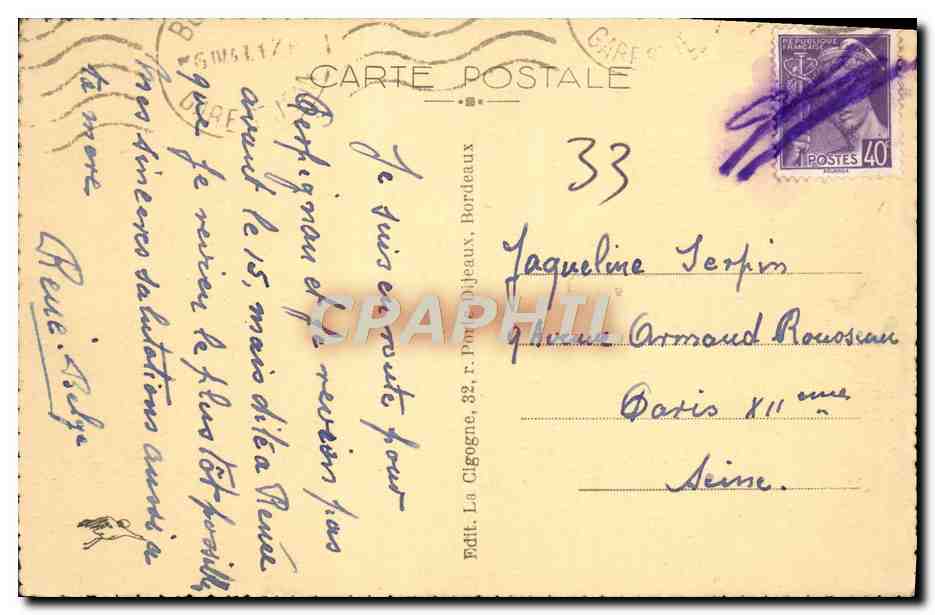 CARTE POSTALE
RÉPUBLIQUE
FRANÇAISE
POSTES 40c
GARE ST
GARE
33
Je suis en route pour
Perpignan et je revein pas
avant le 15, mais dit à Renée
que je revien le plus tôt possible
mes sinceres salutations aussi a
ta mere
René. Belge
Edit. La Cigogne, 32, r. Porte Dijeaux, Bordeaux
Jaqueline Serpin
9 Avenue Armand Rousseau
Paris XII eme
Seine.
CPAPHIL